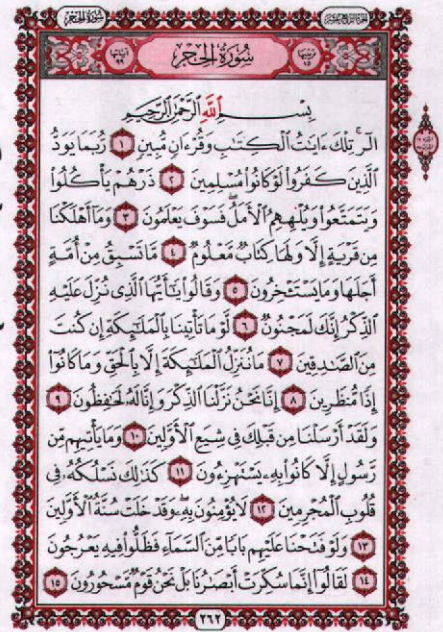 سُورَةُ الْحِجْرِ
سُورَةُ الْحِجْرِ
بِسْمِ اللَّهِ الرَّحْمَٰنِ الرَّحِيمِ
الٓر ۚ تِلْكَ ءَايَٰتُ ٱلْكِتَٰبِ وَقُرْءَانٍ مُّبِينٍ ١ رُّبَمَا يَوَدُّ
ٱلَّذِينَ كَفَرُوا۟ لَوْ كَانُوا۟ مُسْلِمِينَ ٢ ذَرْهُمْ يَأْكُلُوا۟
وَيَتَمَتَّعُوا۟ وَيُلْهِهِمُ ٱلْأَمَلُ ۖ فَسَوْفَ يَعْلَمُونَ ٣ وَمَآ أَهْلَكْنَا
مِن قَرْيَةٍ إِلَّا وَلَهَا كِتَابٌ مَّعْلُومٌ ٤ مَّا تَسْبِقُ مِنْ أُمَّةٍ
أَجَلَهَا وَمَا يَسْتَـْٔخِرُونَ ٥ وَقَالُوا۟ يَٰٓأَيُّهَا ٱلَّذِى نُزِّلَ عَلَيْهِ
ٱلذِّكْرُ إِنَّكَ لَمَجْنُونٌ ٦ لَّوْ مَا تَأْتِينَا بِٱلْمَلَٰٓئِكَةِ إِن كُنتَ
مِنَ ٱلصَّٰدِقِينَ ٧ مَا نُنَزِّلُ ٱلْمَلَٰٓئِكَةَ إِلَّا بِٱلْحَقِّ وَمَا كَانُوٓا۟
إِذًا مُّنظَرِينَ ٨ إِنَّا نَحْنُ نَزَّلْنَا ٱلذِّكْرَ وَإِنَّا لَهُۥ لَحَٰفِظُونَ ٩
وَلَقَدْ أَرْسَلْنَا مِن قَبْلِكَ فِى شِيَعِ ٱلْأَوَّلِينَ ١٠ وَمَا يَأْتِيهِم مِّن
رَّسُولٍ إِلَّا كَانُوا۟ بِهِۦ يَسْتَهْزِءُونَ ١١ كَذَٰلِكَ نَسْلُكُهُۥ فِى
قُلُوبِ ٱلْمُجْرِمِينَ ١٢ لَا يُؤْمِنُونَ بِهِۦ ۖ وَقَدْ خَلَتْ سُنَّةُ ٱلْأَوَّلِينَ
١٣ وَلَوْ فَتَحْنَا عَلَيْهِم بَابًا مِّنَ ٱلسَّمَآءِ فَظَلُّوا۟ فِيهِ يَعْرُجُونَ
١٤ لَقَالُوٓا۟ إِنَّمَا سُكِّرَتْ أَبْصَٰرُنَا بَلْ نَحْنُ قَوْمٌ مَّسْحُورُونَ ١٥
٢٦٢